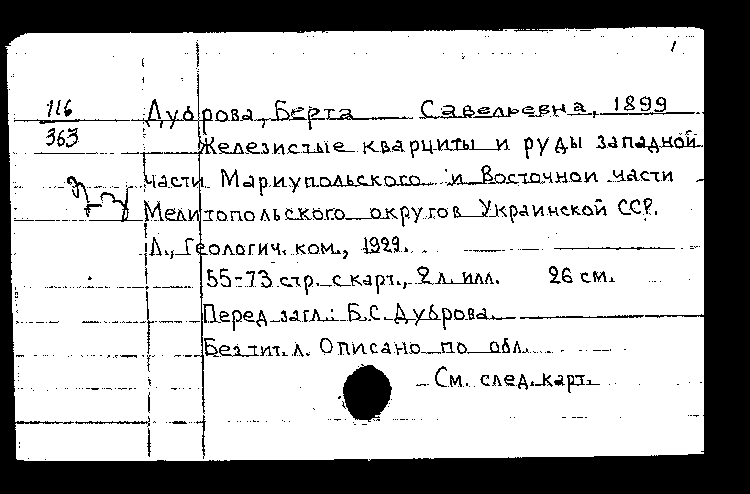 1
116
363
Дуброва, Берта Савельевна, 1899
Железистые кварциты и руды западной
части Мариупольского и Восточной части
Мелитопольского округов Украинской ССР.
Л., Геологич. ком., 1929.
55-73 стр. с карт., 2 л. илл. 26 см.
Перед загл.: Б.С. Дуброва.
Без тит. л. Описано по обл.
См. след. карт.